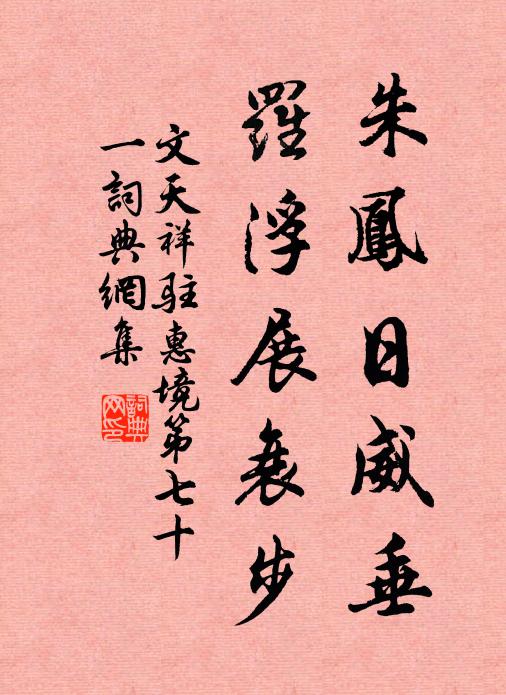 朱鳳日威垂
羅浮展衰步
文天祥駐惠境第七十
一詞典網集
詞典网印